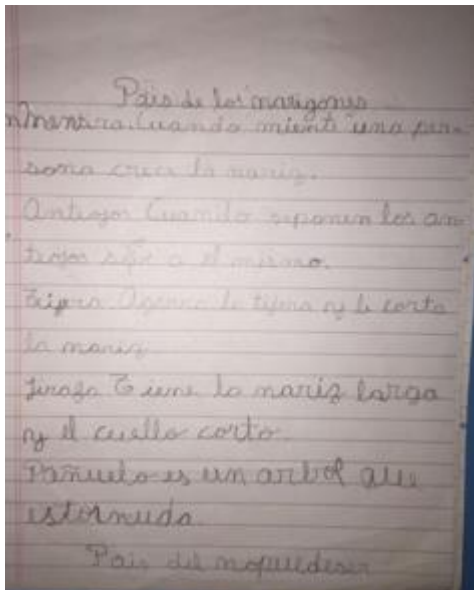 Pais de los narigones
Mentira. Cuando miente una per
sona crece la nariz.
Anteojos Cuando se ponen los an
teojos a el mismo.
tijera Agarra la tijera y le corta
la nariz
Jirafa Tiene la nariz larga
y el cuello corto.
Pañuelo es un arbol que
estornuda.
Pais del nopuedeser